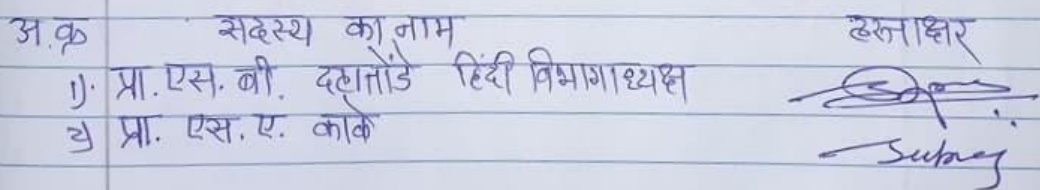 अ.क्र सदस्य का नाम हस्ताक्षर
1). प्रा. एस. बी. दहातोंडे हिंदी विभागाध्यक्ष
2) प्रा. एस. ए. काके